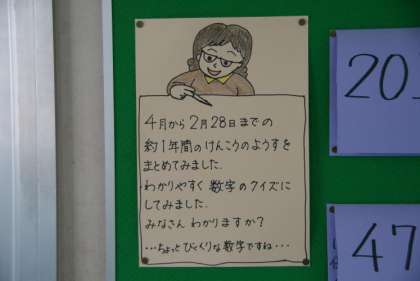 4月から2月28日までの
約1年間のけんこうのようすを
まとめてみました.
わかりやすく 数字のクイズに
してみました.
みなさん わかりますか?
…ちょっとびっくりな数字ですね…
20
47